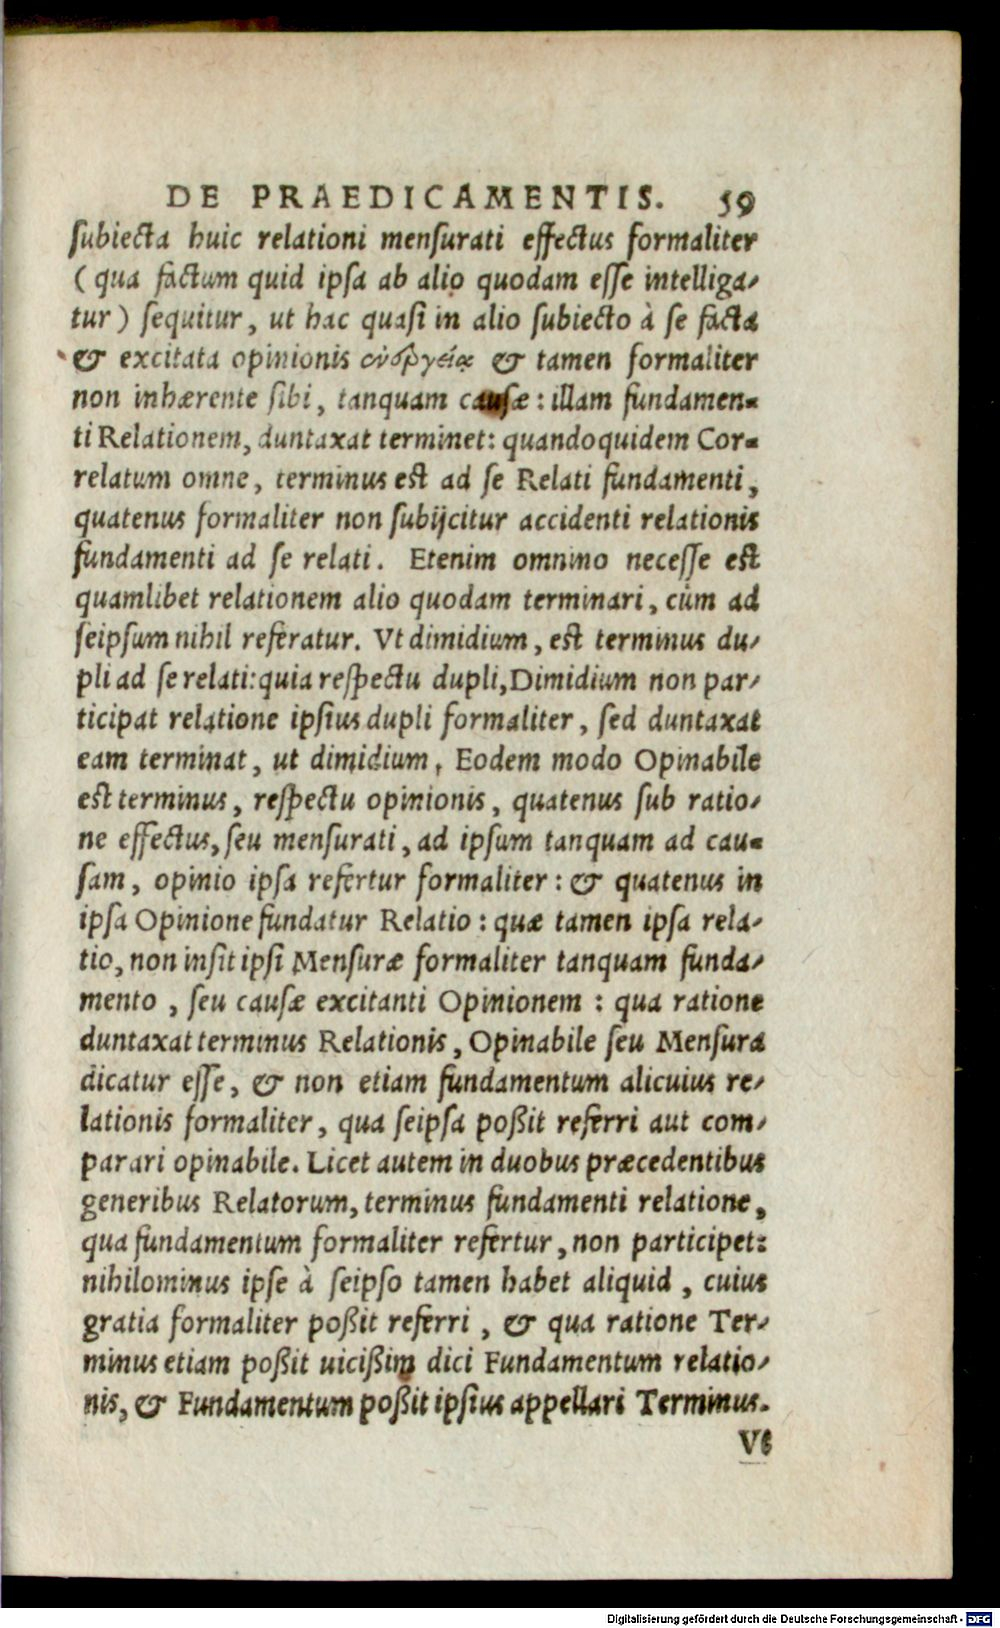 DE PRAEDICAMENTIS. 59
subiecta huic relationi mensurati effectus formaliter
(qua factum quid ipsa ab alio quodam esse intelliga-
tur) sequitur, ut hac quasi in alio subiecto à se facta
& excitata opinionis ἐνεργείᾳ & tamen formaliter
non inhærente sibi, tanquam causæ: illam fundamen-
ti Relationem, duntaxat terminet: quandoquidem Cor-
relatum omne, terminus est ad se Relati fundamenti,
quatenus formaliter non subijcitur accidenti relationis
fundamenti ad se relati. Etenim omnino necesse est
quamlibet relationem alio quodam terminari, cùm ad
seipsum nihil referatur. Vt dimidium, est terminus du-
pli ad se relati: quia respectu dupli, Dimidium non par-
ticipat relatione ipsius dupli formaliter, sed duntaxat
eam terminat, ut dimidium, Eodem modo Opinabile
est terminus, respectu opinionis, quatenus sub ratio-
ne effectus, seu mensurati, ad ipsum tanquam ad cau-
sam, opinio ipsa refertur formaliter: & quatenus in
ipsa Opinione fundatur Relatio: quæ tamen ipsa rela-
tio, non insit ipsi Mensuræ formaliter tanquam funda-
mento, seu causæ excitanti Opinionem: qua ratione
duntaxat terminus Relationis, Opinabile seu Mensura
dicatur esse, & non etiam fundamentum alicuius re-
lationis formaliter, qua seipsa poßit referri aut com-
parari opinabile. Licet autem in duobus præcedentibus
generibus Relatorum, terminus fundamenti relatione,
qua fundamentum formaliter refertur, non participet:
nihilominus ipse à seipso tamen habet aliquid, cuius
gratia formaliter poßit referri, & qua ratione Ter-
minus etiam poßit uicißim dici Fundamentum relatio-
nis, & Fundamentum poßit ipsius appellari Terminus.
Vt
Digitalisierung gefördert durch die Deutsche Forschungsgemeinschaft - DFG